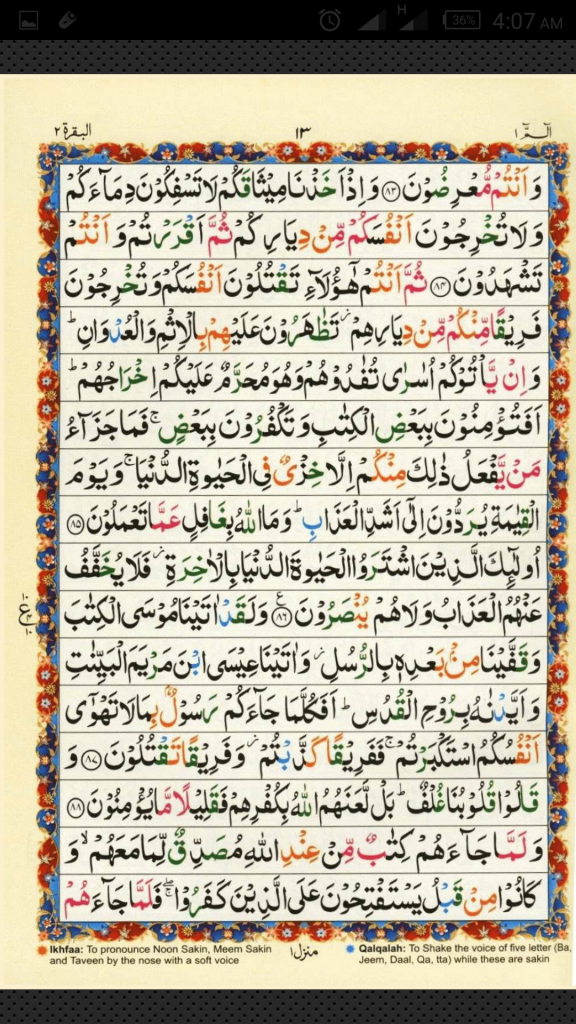 H 36% 4:07 AM
البقرة ٢ ١٣ الٓـمّٓ ١
وَاَنْتُمْ مُّعْرِضُوْنَ ﴿٨٣﴾ وَاِذْ اَخَذْنَا مِيْثَاقَكُمْ لَا تَسْفِكُوْنَ دِمَآءَكُمْ
وَلَا تُخْرِجُوْنَ اَنْفُسَكُمْ مِّنْ دِيَارِكُمْ ثُمَّ اَقْرَرْتُمْ وَاَنْتُمْ
تَشْهَدُوْنَ ﴿٨٤﴾ ثُمَّ اَنْتُمْ هٰٓؤُلَآءِ تَقْتُلُوْنَ اَنْفُسَكُمْ وَتُخْرِجُوْنَ
فَرِيْقًا مِّنْكُمْ مِّنْ دِيَارِهِمْ ز تَظٰهَرُوْنَ عَلَيْهِمْ بِالْاِثْمِ وَالْعُدْوَانِ ط
وَاِنْ يَّاْتُوْكُمْ اُسٰرٰى تُفٰدُوْهُمْ وَهُوَ مُحَرَّمٌ عَلَيْكُمْ اِخْرَاجُهُمْ ط
اَفَتُؤْمِنُوْنَ بِبَعْضِ الْكِتٰبِ وَتَكْفُرُوْنَ بِبَعْضٍ ج فَمَا جَزَآءُ
مَنْ يَّفْعَلُ ذٰلِكَ مِنْكُمْ اِلَّا خِزْىٌ فِى الْحَيٰوةِ الدُّنْيَا ج وَيَوْمَ
الْقِيٰمَةِ يُرَدُّوْنَ اِلٰٓى اَشَدِّ الْعَذَابِ ط وَمَا اللّٰهُ بِغَافِلٍ عَمَّا تَعْمَلُوْنَ ﴿٨٥﴾
اُولٰٓئِكَ الَّذِيْنَ اشْتَرَوُا الْحَيٰوةَ الدُّنْيَا بِالْاٰخِرَةِ ز فَلَا يُخَفَّفُ
عَنْهُمُ الْعَذَابُ وَلَا هُمْ يُنْصَرُوْنَ ﴿٨٦﴾ ع وَلَقَدْ اٰتَيْنَا مُوْسَى الْكِتٰبَ
وَقَفَّيْنَا مِنْۢ بَعْدِهٖ بِالرُّسُلِ ز وَاٰتَيْنَا عِيْسَى ابْنَ مَرْيَمَ الْبَيِّنٰتِ
وَاَيَّدْنٰهُ بِرُوْحِ الْقُدُسِ ط اَفَكُلَّمَا جَآءَكُمْ رَسُوْلٌۢ بِمَا لَا تَهْوٰٓى
اَنْفُسُكُمُ اسْتَكْبَرْتُمْ ج فَفَرِيْقًا كَذَّبْتُمْ ز وَفَرِيْقًا تَقْتُلُوْنَ ﴿٨٧﴾ وَ
قَالُوْا قُلُوْبُنَا غُلْفٌ ط بَلْ لَّعَنَهُمُ اللّٰهُ بِكُفْرِهِمْ فَقَلِيْلًا مَّا يُؤْمِنُوْنَ ﴿٨٨﴾
وَلَمَّا جَآءَهُمْ كِتٰبٌ مِّنْ عِنْدِ اللّٰهِ مُصَدِّقٌ لِّمَا مَعَهُمْ لا وَ
كَانُوْا مِنْ قَبْلُ يَسْتَفْتِحُوْنَ عَلَى الَّذِيْنَ كَفَرُوْا ج فَلَمَّا جَآءَهُمْ
منزل ١
Ikhfaa: To pronounce Noon Sakin, Meem Sakin
and Taveen by the nose with a soft voice
Qalqalah: To Shake the voice of five letter (Ba,
Jeem, Daal, Qa, tta) while these are sakin